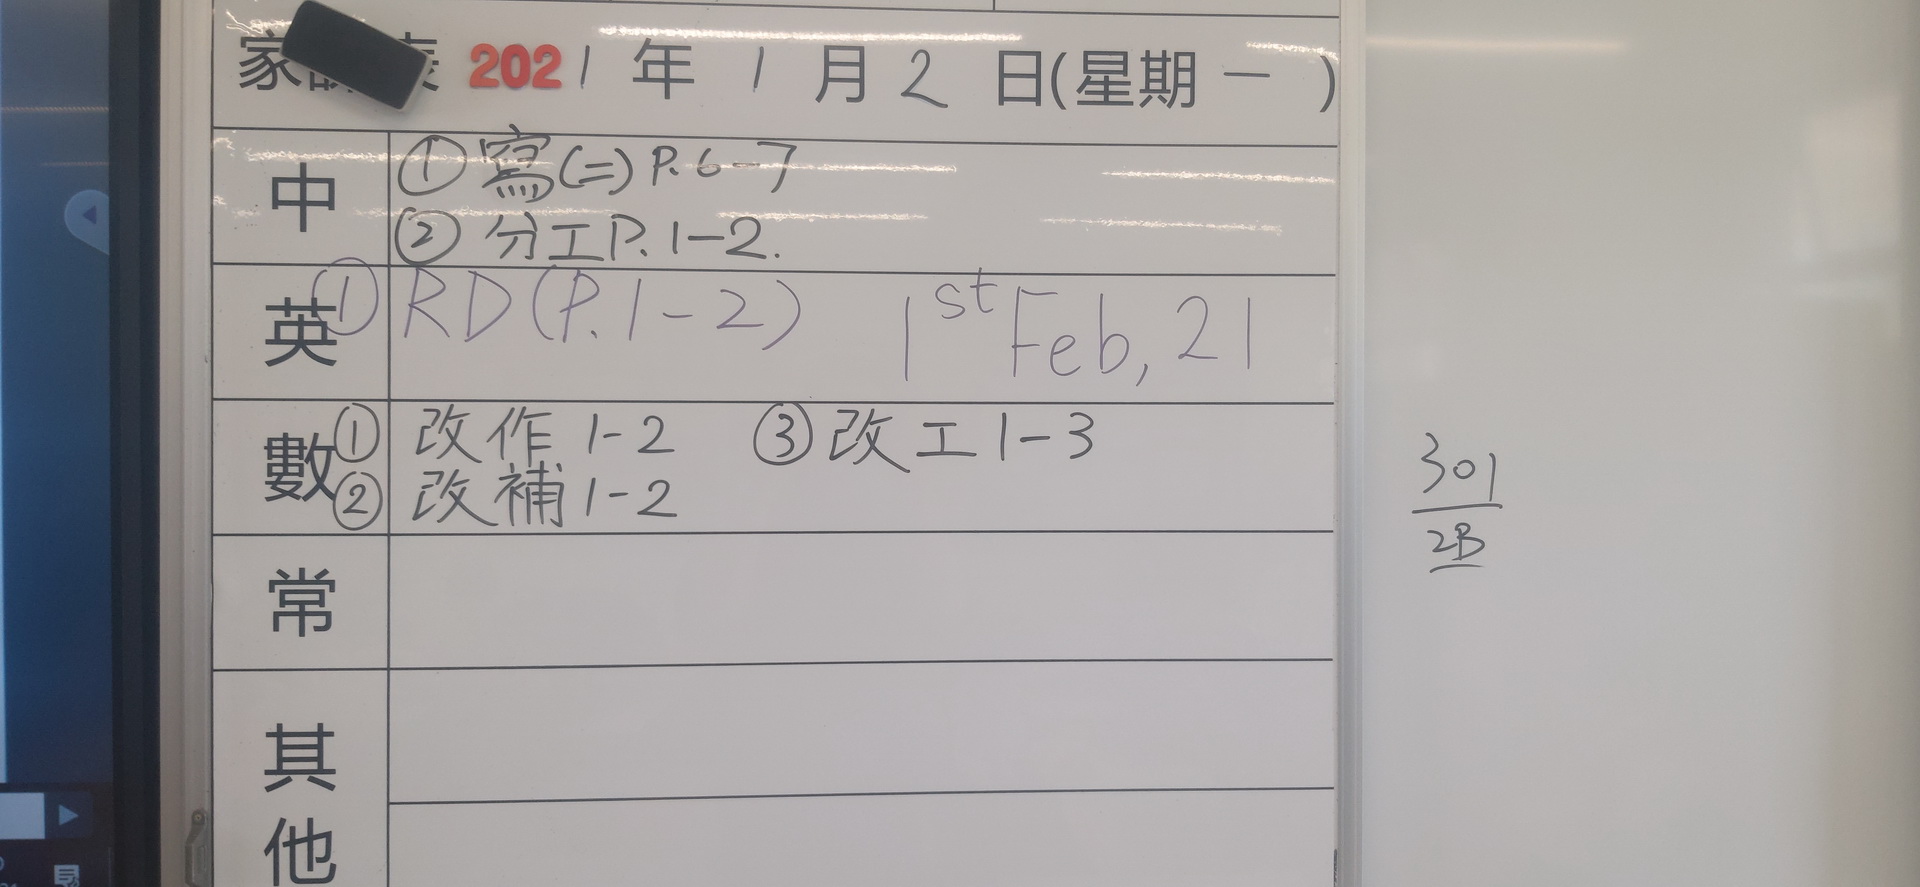 家課表 2021 年 1 月 2 日(星期一)
中
① 寫(二) P.6-7
② 分工 P.1-2.
英
① RD (P.1-2) 1st Feb, 21
數
① 改作 1-2 ③ 改工 1-3
② 改補 1-2
常
其他
301
2B